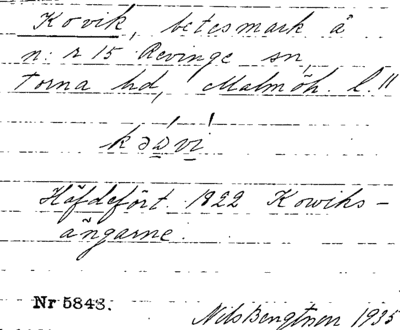 Kovik, betesmark å
n:r 15 Revinge sn,
Torna hd, Malmöh. l."
Häfdefört 1822 Kowiks-
ängarne.
Nr 5843.
Nils Bengtsson 1935